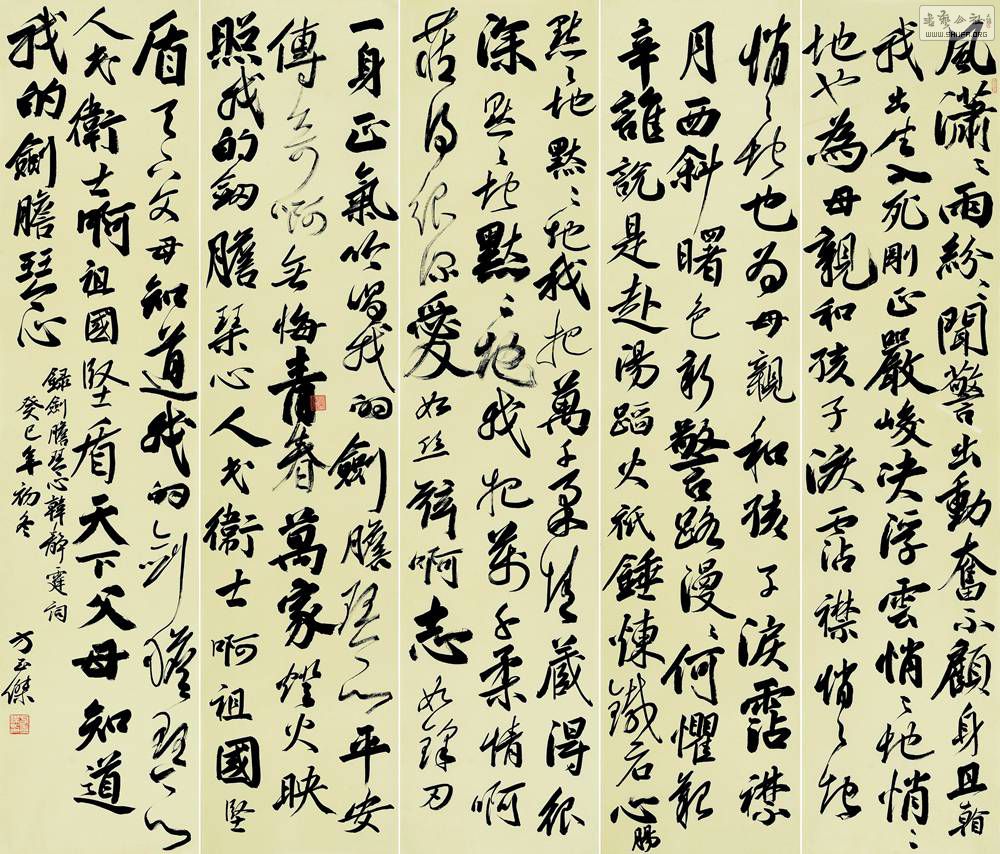 書藝公社
WWW.SHUFA.ORG
風瀟々雨紛々聞警出動奮不顧身且
我出生入死剛正嚴峻決浮雲悄々地悄々
地也為母親和孩子淚霑襟悄々地
悄々地也為母親和孩子淚霑襟
月西斜曙色新警路漫々何懼艱
辛誰說是赴湯蹈火祇錘煉鐵石心腸
默々地默々地我把萬千柔情藏得很
深默々地默々地我把萬千柔情啊
藏得很深愛如絲弦啊志如鋒刃
一身正氣吟唱我的劍膽琴心平安
傳奇啊無悔青春萬家燈火映
照我的劍膽琴心人民衛士啊祖國堅
盾天下父母知道我的劍膽琴心
人民衛士啊祖國堅盾天下父母知道
我的劍膽琴心
錄劍膽琴心韓靜霆詞
癸巳年初冬